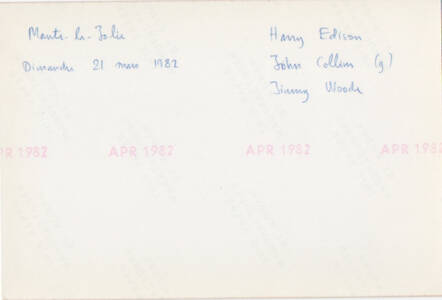 Mantes-la-Jolie
Dimanche 21 mars 1982
Harry Edison
John Collins (g)
Jimmy Woode
PR 1982 APR 1982 APR 1982 APR 198